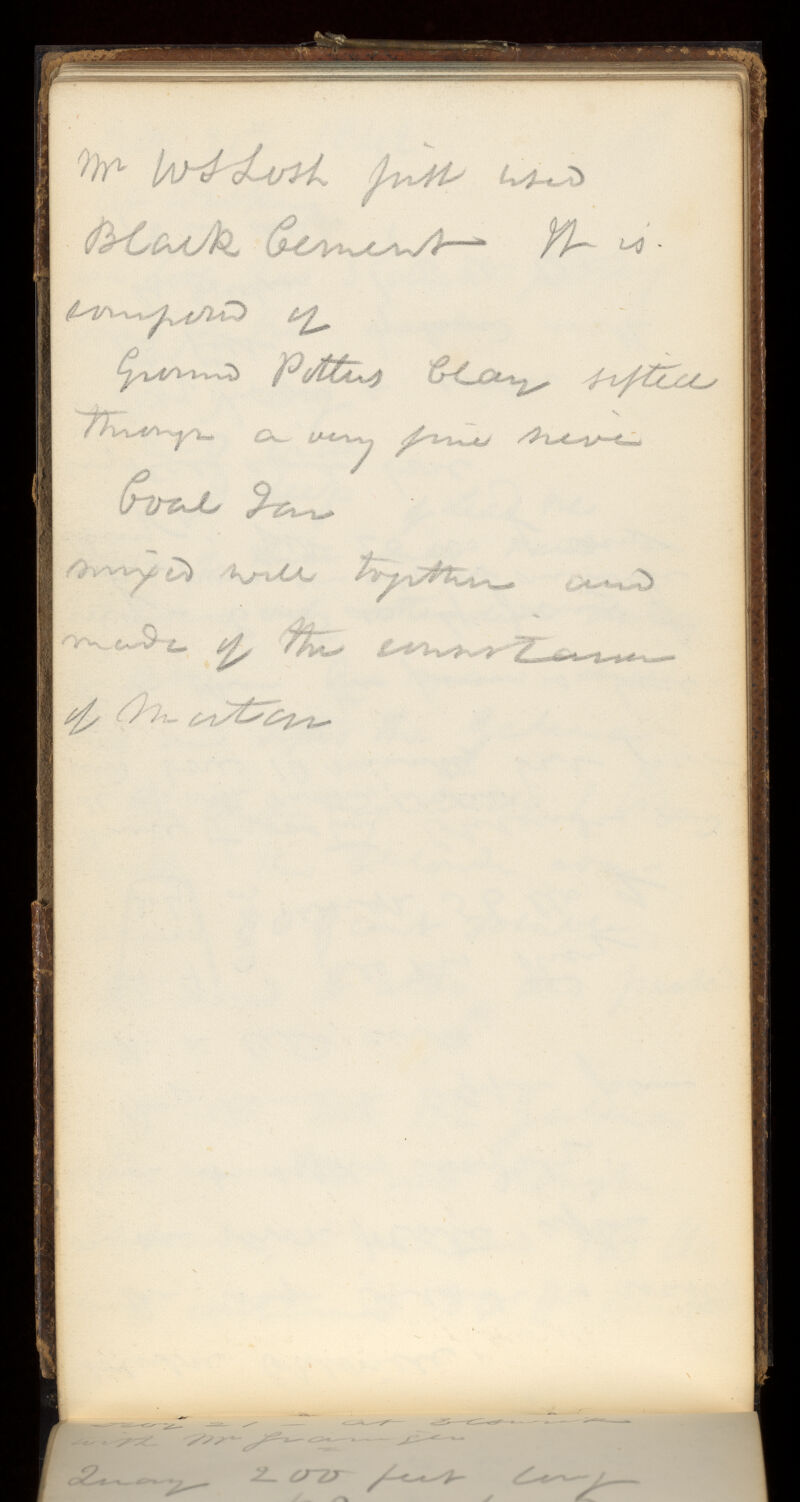 Mr W S Losh first used
Black Cement It is
composed of
Ground Potters Clay sifted
through a very fine sieve
Coal Tar
mixed well together and
made of the consistance
of Mortar
at Elswick
with Mr Grainger
Quay 200 feet long